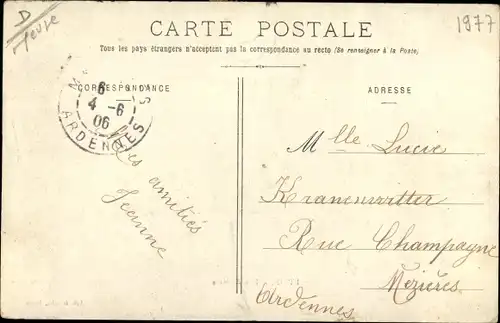 CARTE POSTALE
1977
D
Meuse
Tous les pays étrangers n'acceptent pas la correspondance au recto (Se renseigner à la Poste)
CORRESPONDANCE
ADRESSE
6
4 -6
06
ARDENNES
Mlle Lucie
Kranenwitter
Rue Champagne
Mézières
Ardennes
amitiés
Jeanne